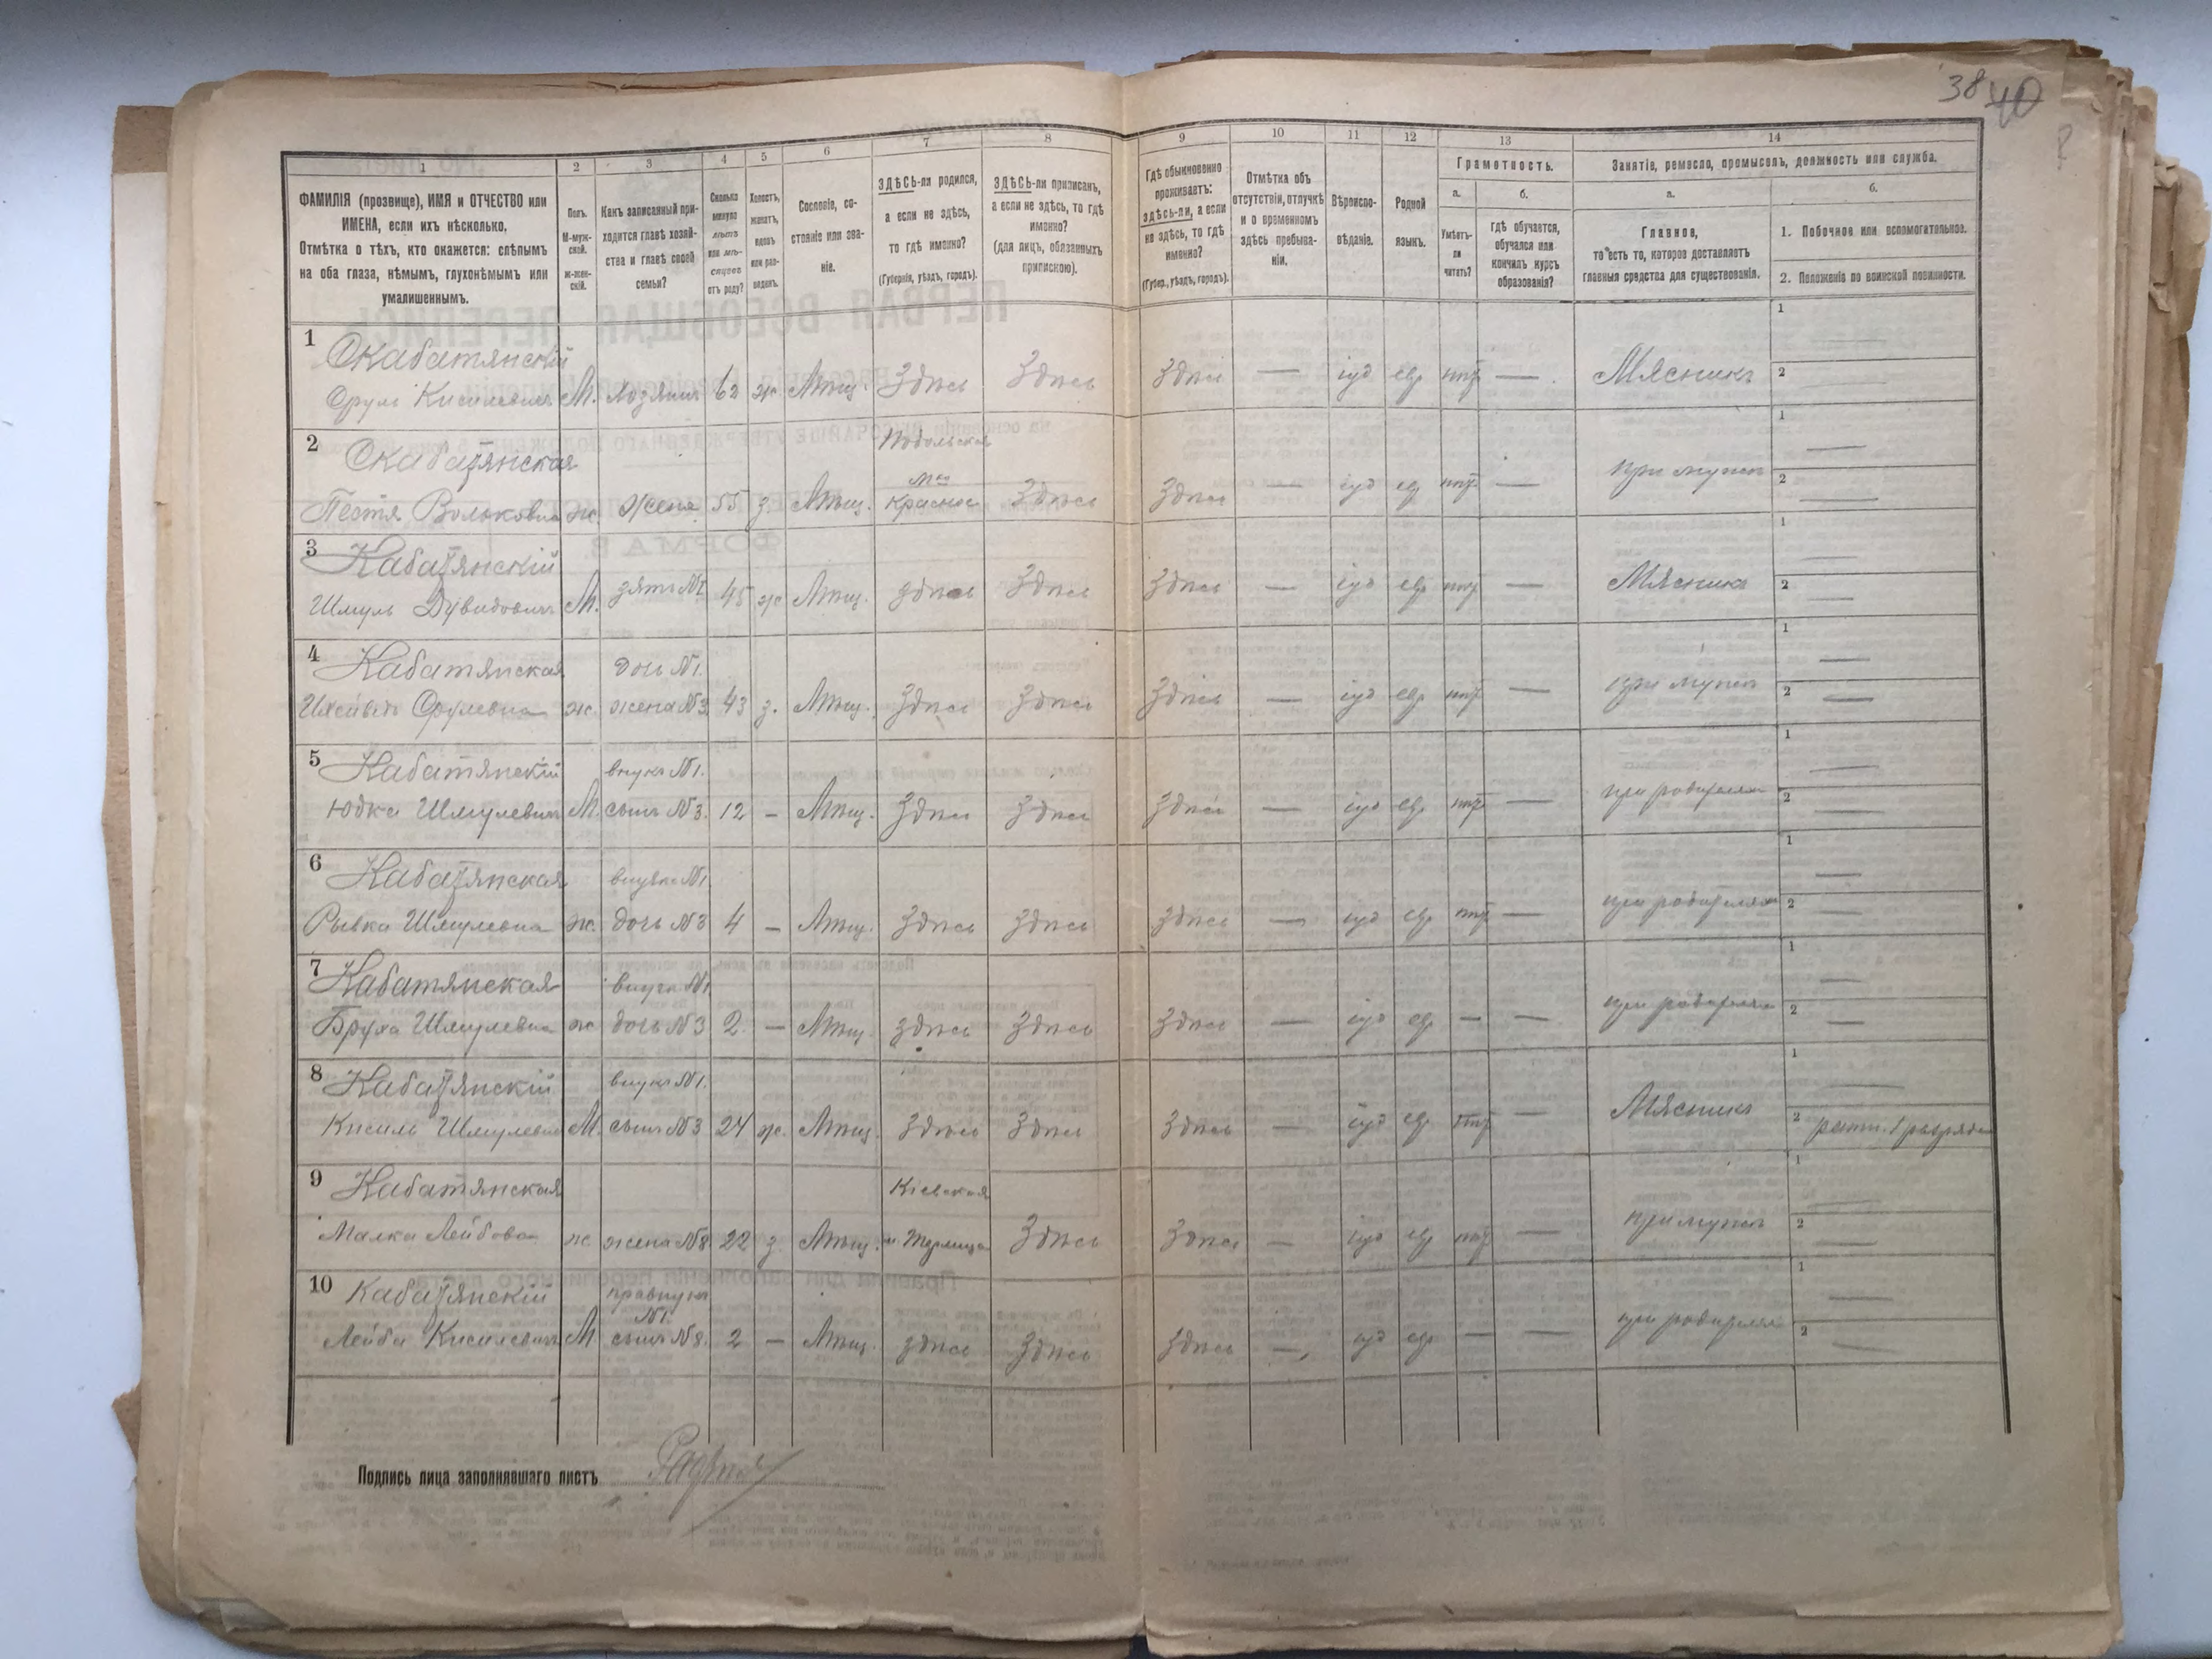 38 40
1 2 3 4 5 6 7 8 9 10 11 12 13 14
ФАМИЛІЯ (прозвище), ИМЯ и ОТЧЕСТВО или
ИМЕНА, если ихъ нѣсколько.
Отмѣтка о тѣхъ, кто окажется: слѣпымъ
на оба глаза, нѣмымъ, глухонѣмымъ или
умалишеннымъ.
Полъ.
М-муж-
ской.
Ж-жен-
скій.
Какъ записанный при-
ходится главѣ хозяй-
ства и главѣ своей
семьи?
Сколько
минуло
лѣтъ
или мѣ-
сяцевъ
отъ роду?
Холостъ,
женатъ,
вдовъ
или раз-
веденъ.
Сословіе, со-
стояніе или зва-
ніе.
ЗДѢСЬ-ли родился,
а если не здѣсь,
то гдѣ именно?
(Губернія, уѣздъ, городъ).
ЗДѢСЬ-ли приписанъ,
а если не здѣсь, то гдѣ
именно?
(для лицъ, обязанныхъ
припискою).
Гдѣ обыкновенно
проживаетъ:
здѣсь-ли, а если
не здѣсь, то гдѣ
именно?
(Губер., уѣздъ, городъ).
Отмѣтка объ
отсутствіи, отлучкѣ
и о временномъ
здѣсь пребыва-
ніи.
Вѣроиспо-
вѣданіе.
Родной
языкъ.
Грамотность.
а. б.
Умѣетъ-
ли
читать?
Гдѣ обучается,
обучался или
кончилъ курсъ
образованія?
Занятіе, ремесло, промыселъ, должность или служба.
а. б.
Главное,
то есть то, которое доставляетъ
главныя средства для существованія.
1. Побочное или вспомогательное.
2. Положеніе по воинской повинности.
1 Скабатянскій
Срулъ Кисилевичъ М. хозяинъ 62 ж. Мѣщ. Здѣсь Здѣсь Здѣсь — іуд евр нѣт — Мясникъ 1 2
2 Скабатянская Подольская
Пестя Вольковна ж. жена 55 з. Мѣщ. Мко Красное Здѣсь Здѣсь — іуд евр нѣт — при мужѣ 1 — 2 —
3 Кабатянскій
Шмуль Дувидовичъ М. зять №1 45 ж Мѣщ. здѣсь Здѣсь Здѣсь — іуд евр нѣт — Мясникъ 1 — 2 —
4 Кабатянская дочь №1.
Орулевна ж. жена №3. 43 з. Мѣщ. Здѣсь Здѣсь Здѣсь — іуд евр нѣт — при мужѣ 1 — 2 —
5 Кабатянскій внукъ №1.
Юдка Шмулевичъ М. сынъ №3. 12 — Мѣщ. Здѣсь Здѣсь Здѣсь — іуд евр нѣт — при родителяхъ 1 — 2 —
6 Кабатянская внучка №1
Рывка Шмулевна ж. дочь №3 4 — Мѣщ. Здѣсь Здѣсь Здѣсь — іуд евр нѣт — при родителяхъ 1 — 2 —
7 Кабатянская внучка №1
Бруха Шмулевна ж дочь №3 2 — Мѣщ. здѣсь Здѣсь Здѣсь — іуд евр — — при родителяхъ 1 — 2 —
8 Кабатянскій внукъ №1.
Кисиль Шмулевичъ М. сынъ №3 24 ж. Мѣщ. Здѣсь Здѣсь Здѣсь — іуд евр нѣт — Мясникъ 1 — 2 ратн. 1 разряда
9 Кабатянская Кіевская
Малка Лейбова ж жена №8. 22 з. Мѣщ. Здѣсь Здѣсь — іуд евр нѣт — при мужѣ 1 — 2 —
10 Кабатянскій правнукъ
№1.
Лейба Кисилевичъ М сынъ №8. 2 — Мѣщ. здѣсь Здѣсь Здѣсь — іуд евр — — при родителяхъ 1 — 2 —
Подпись лица заполнявшаго листъ